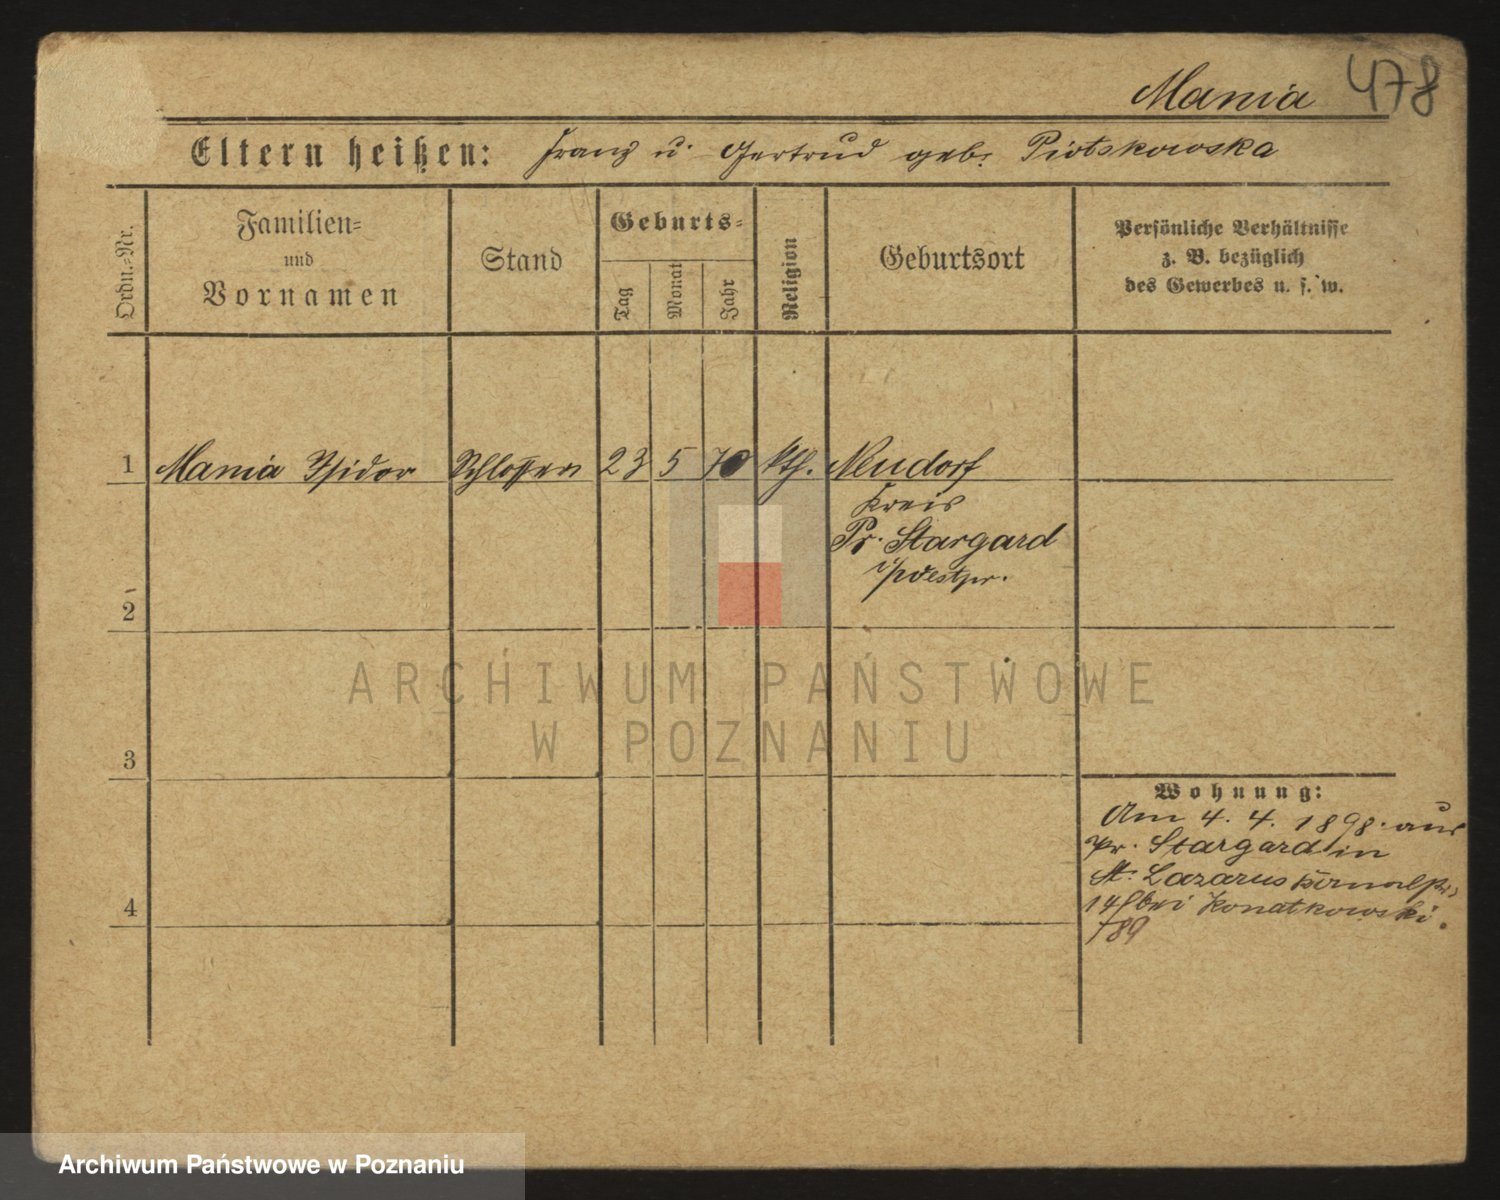 Mania 478
Eltern heißen: Franz u. Gertrud geb. Piotskowska
Ordn.-Nr.
Familien-
und
Vornamen
Stand
Geburts-
Tag
Monat
Jahr
Religion
Geburtsort
Persönliche Verhältnisse
z. B. bezüglich
des Gewerbes u. s. w.
1 Mania Isidor Schlosser 23 5 70 kth. Neudorf
Kreis
Pr. Stargard
i/Westpr.
2
ARCHIWUM PAŃSTWOWE
W POZNANIU
3
Wohnung:
Am 4. 4. 1898 aus
Pr. Stargard in
St. Lazarus
4
14 bei Konatkowski.
189
Archiwum Państwowe w Poznaniu